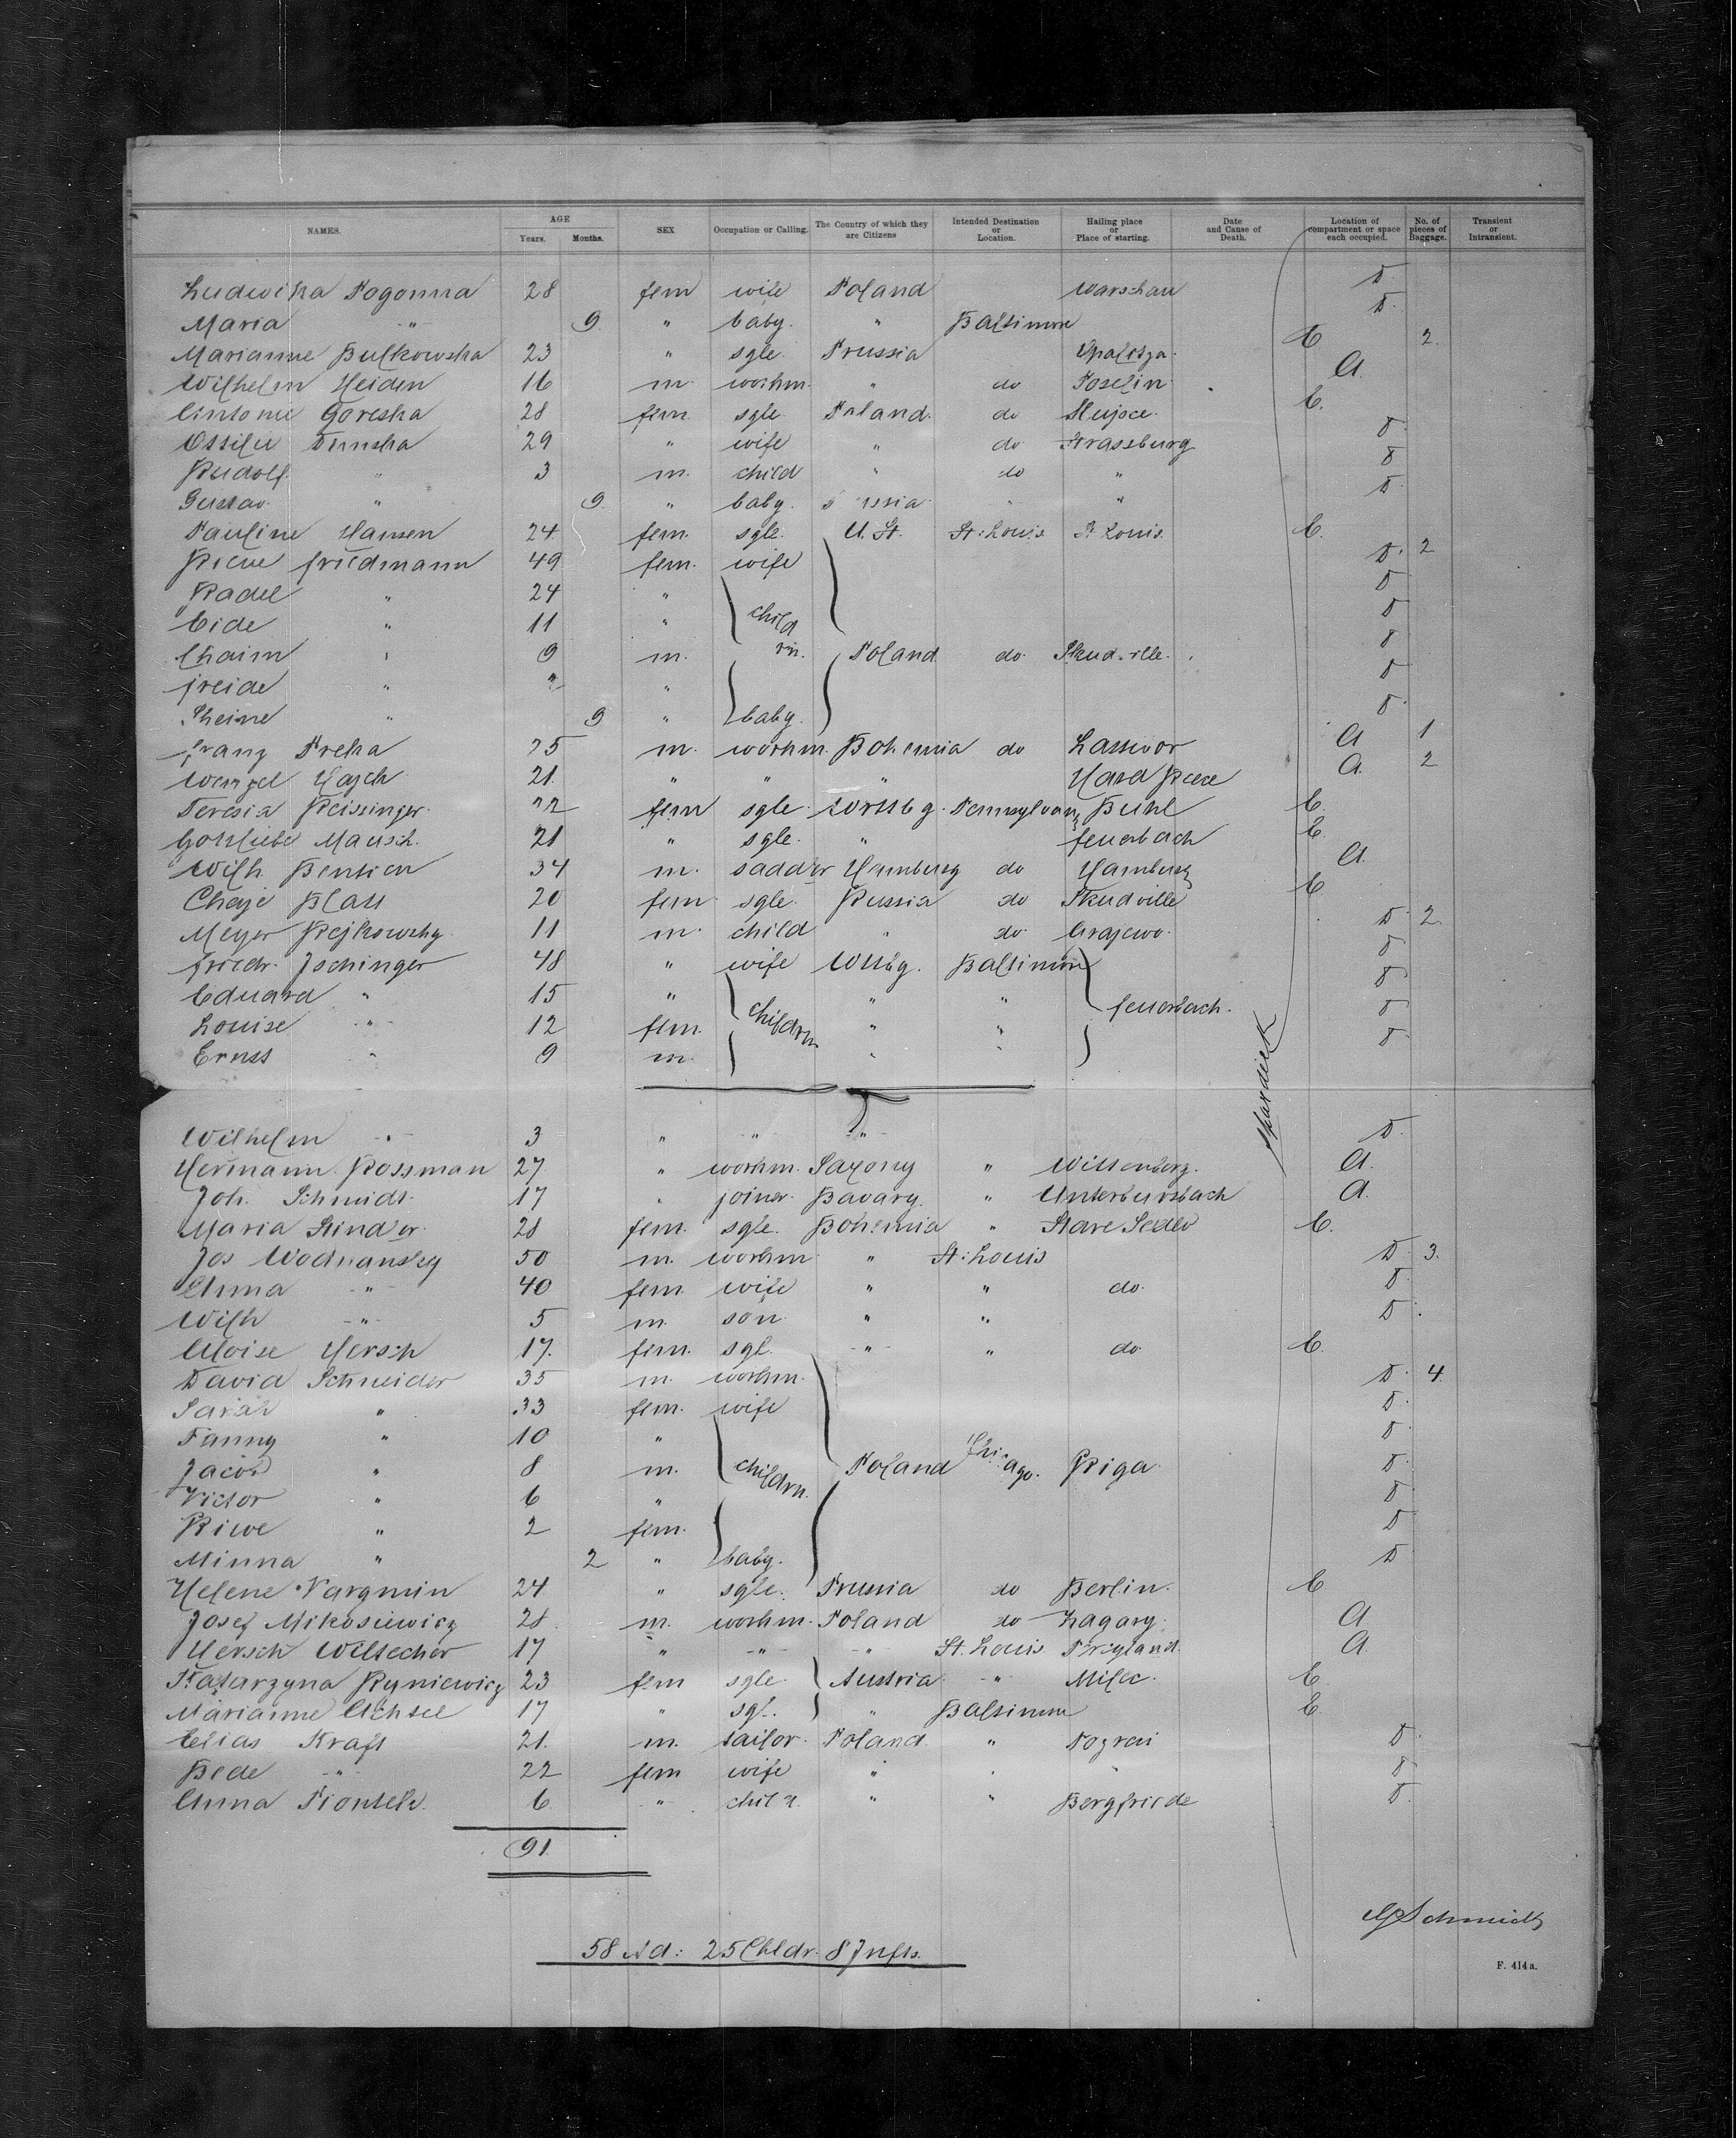 NAMES. AGE Years. Months. SEX Occupation or Calling. The Country of which they are Citizens Intended Destination or Location. Hailing place or Place of starting. Date and Cause of Death. Location of compartment or space each occupied. No. of pieces of Baggage. Transient or Intransient.
Ludwika Pogonna 28 fem wife Poland Warschau D
Maria " 9 " baby. " Baltimore D.
Marianne Bulkowska 23 " sgle. Prussia C 2.
Wilhelm Heiden 16 m. workm. " do Poselin A.
Antonie Goreska 28 fem. sgle. Poland. do C.
Dunska 29 " wife " do Strassburg D.
Rudolf. " 3 m. child " do " D
Gustav. " 9. " baby. " " D.
Pauline Hansen 24. fem. sgle. U. St. St: Louis St Louis. C.
Friedmann 49 fem. wife D. 2
Radel " 24 " D
" 11 " child D
Chaim " 9 m. rn. Poland do. D
freide " " D
Sheine " 9 " baby. D.
Franz Preka 25 m. workm. Bohemia do A 1
Wenzel Hajek 21. " " " A. 2
Teresia Reissinger. 22 fem sgle. Pennsylvan. Buhl C.
Gottliebe Mausch. 21 " sgle. " feuerbach C.
Wilh. Bentien 34 m. saddler Hamburg do Hamburg A.
Chaje Blatt 20 fem sgle. Russia do Skudville C
Meyer Rejkowsky. 11 m. child " do Grajewo. D. 2.
friedr. Ischinger 48 " wife Wttbg. Baltimore D
Eduard " 15 " " " feuerbach. D
Louise " 12 fem. children " " D
Ernst " 9 m. " " D
Wilhelm " 3 " " " D.
Hermann Rossman 27 " workm. Saxony " Wittenberg. A.
Joh. Schmidt. 17 " joiner. Bavary. " A.
Maria Stinder. 28 fem. sgle. Bohemia " Stare Sedlo C.
Jos Wodnansky 50 m. workm. " St: Louis D. 3.
Anna " 40 fem. wife " " do. D.
Wilh " 5 m. son. " " D.
Aloise Hersch 17. fem. sgl. " " do. C.
David Schneider 35 m. workm. D. 4
Sarah " 33 fem. wife D.
Fanny " 10 " D.
Jacob " 8 m. childrn. Poland Chicago. Riga. D.
Victor " 6 " D
Riwe " 2 fem. D
Minna " 2 " baby. D.
Helene Vargmin 24 " sgle. Prussia do Berlin. C
Josef Mikosiewicz 28. m. workm. Poland do Zagary. A
Hersch Wiltscher 17 " " " St. Louis A.
Katarzyna Ryniewicz 23 fem sgle. Austria " C
Marianne Achsel 17 " sgl. " Baltimore C
Elias Kraft 21. m. tailor. Poland. " D.
Bede " 22 fem wife " " " D
Anna Piontek. 6 " child. " " Bergfriede D.
91.
58 Ad: 25 Chldr. 8 Infts.
Schmidt
F. 414 a.